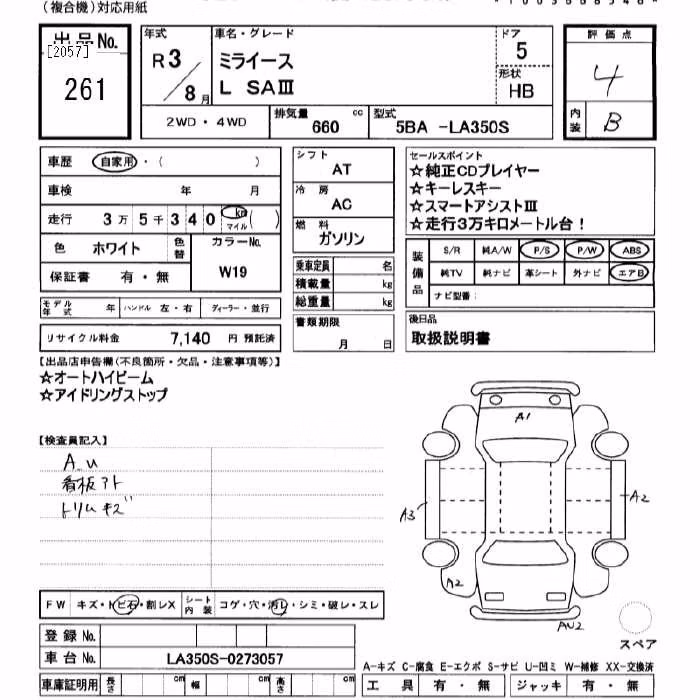 (複合機)対応用紙
出品No.
[2057]
261
年式
R 3/8月
車名・グレード
ミライース
L SAⅢ
ドア
5
形状
HB
評価点
4
内装
B
2WD・4WD
排気量
660 cc
型式
5BA -LA350S
車歴 自家用・( )
車検 年 月
走行 3万5千340 km マイル ( )
色 ホワイト 色替
カラーNo.
W19
保証書 有・無
モデル年式 年 ハンドル 左・右 ディーラー・並行
リサイクル料金 7,140 円 預託済
シフト
AT
冷房
AC
燃料
ガソリン
乗車定員 名
積載量 kg
総重量 kg
書類期限
月 日
セールスポイント
☆純正CDプレイヤー
☆キーレスキー
☆スマートアシストⅢ
☆走行3万キロメートル台!
装備品
S/R 純A/W P/S P/W ABS
純TV 純ナビ 革シート 外ナビ エアB
ナビ型番:
後日品
取扱説明書
【出品店申告欄(不良箇所・欠品・注意事項等)】
☆オートハイビーム
☆アイドリングストップ
【検査員記入】
A_U
看板アト
トリムキズ
A1
A3
A2
A2
AU2
スペア
FW キズ・トビ石・割レX
シート内装 コゲ・穴・汚レ・シミ・破レ・スレ
登録No.
車台No. LA350S-0273057
車庫証明用 長さ cm 幅 cm 高さ cm
A-キズ C-腐食 E-エクボ S-サビ U-凹ミ W-補修 XX-交換済
工具 有・無 ジャッキ 有・無